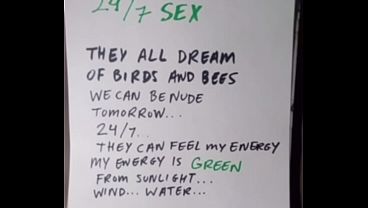 24/7 SEX
THEY ALL DREAM
OF BIRDS AND BEES
WE CAN BE NUDE
TOMORROW...
24/7..
THEY CAN FEEL MY ENERGY
MY ENERGY IS GREEN
FROM SUNLIGHT...
WIND... WATER...